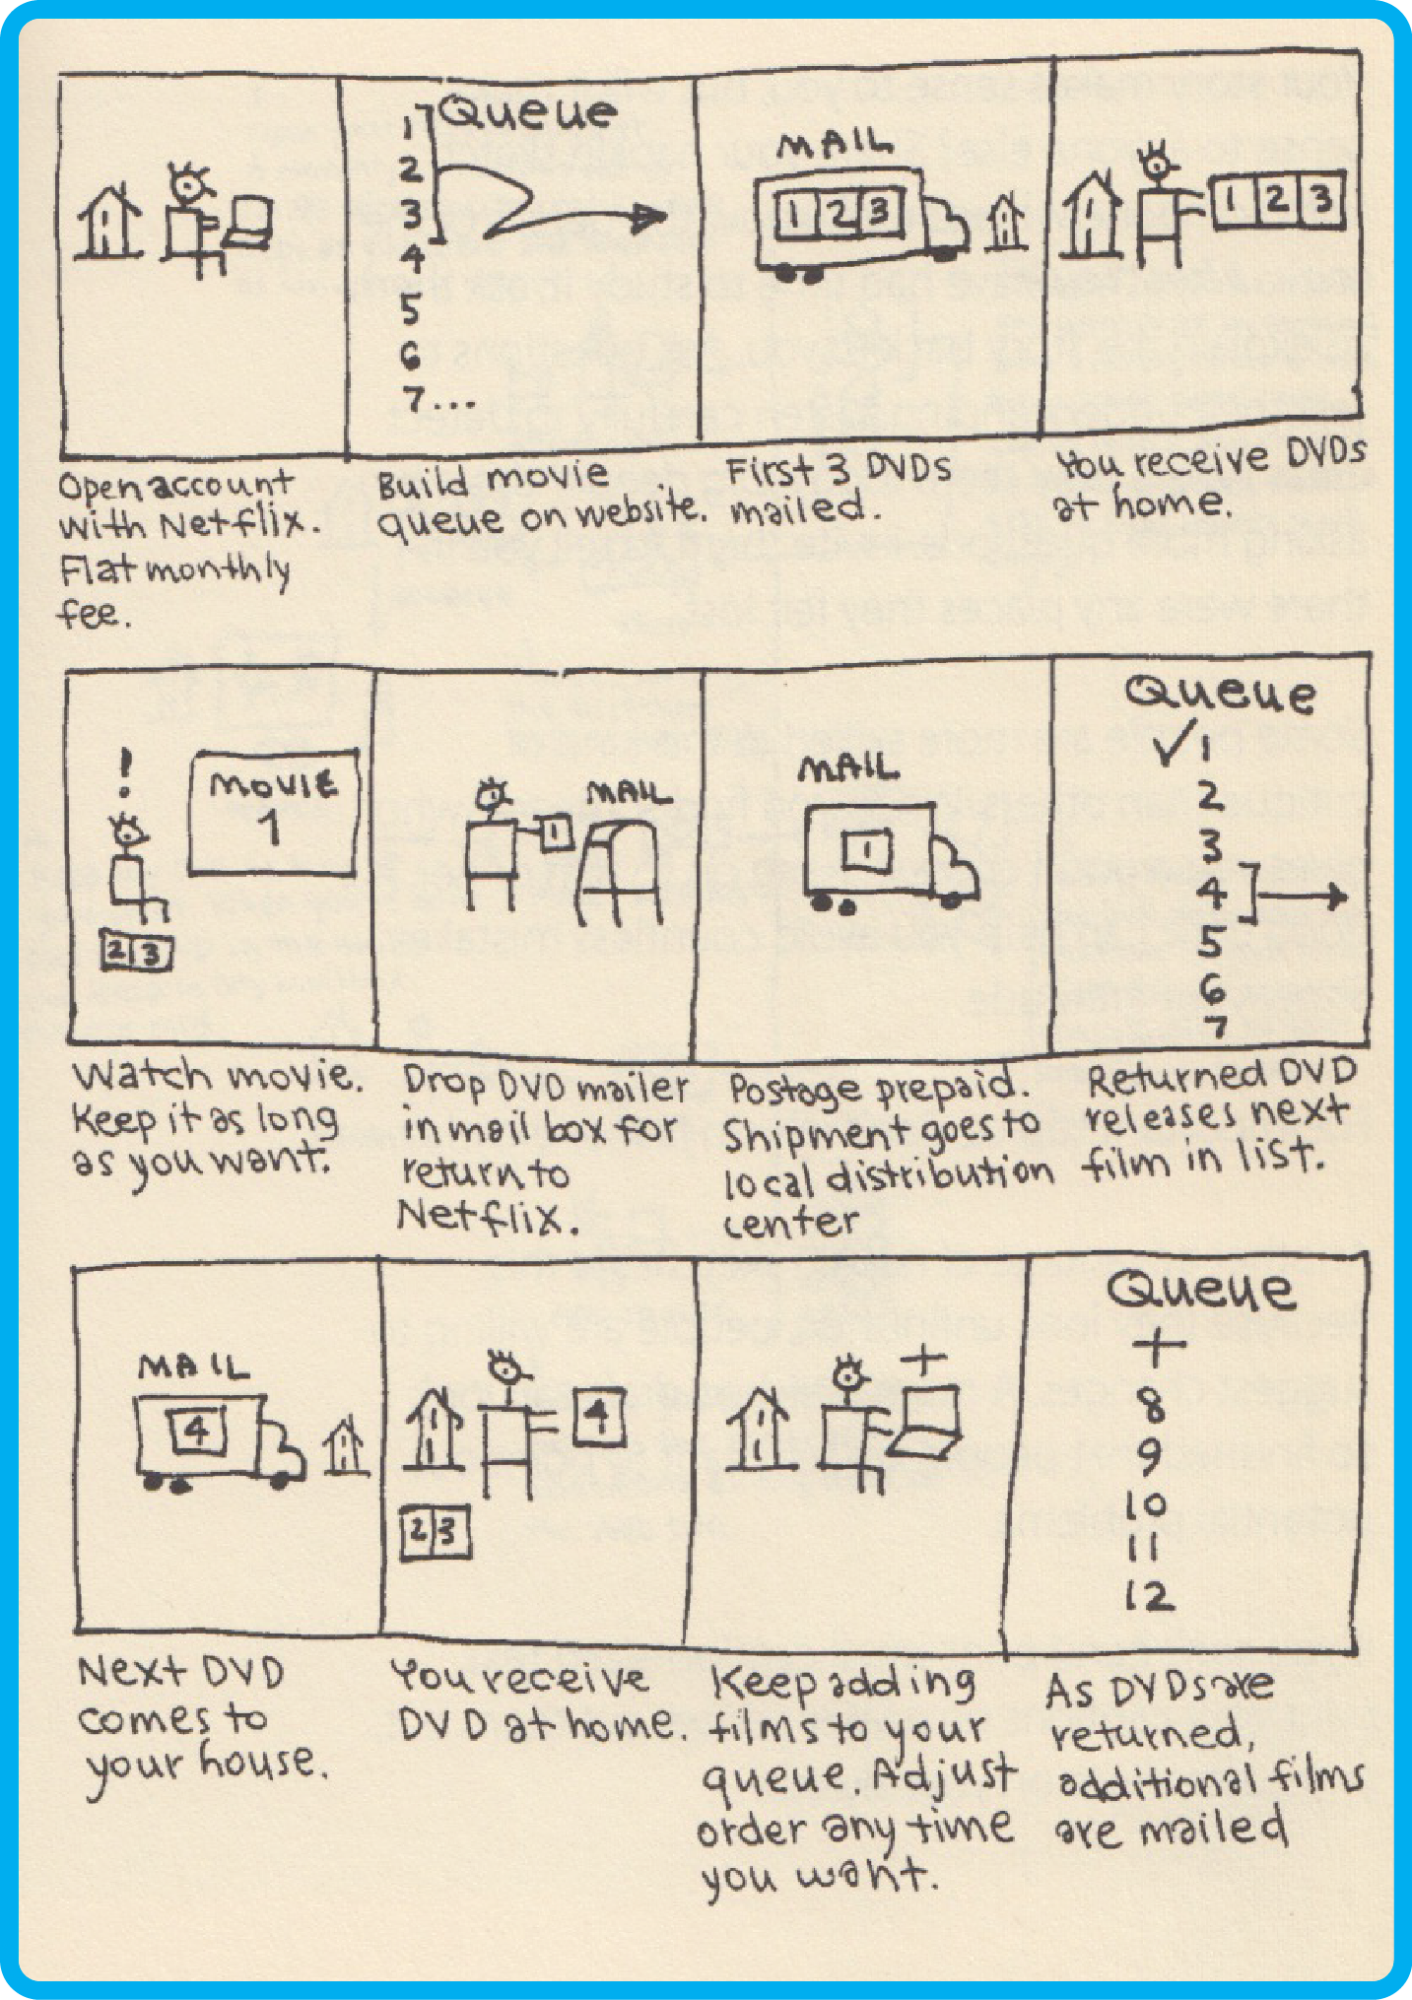 Queue
1
2
3
4
5
6
7...
MAIL
1 2 3
1 2 3
Open account
with Netflix.
Flat monthly
fee.
Build movie
queue on website.
First 3 DVDs
mailed.
You receive DVDs
at home.
!
MOVIE
1
2 3
1
MAIL
MAIL
1
Queue
✓1
2
3
4
5
6
7
Watch movie.
Keep it as long
as you want.
Drop DVD mailer
in mail box for
return to
Netflix.
Postage prepaid.
Shipment goes to
local distribution
center
Returned DVD
releases next
film in list.
MAIL
4
4
2 3
+
Queue
+
8
9
10
11
12
Next DVD
comes to
your house.
You receive
DVD at home.
Keep adding
films to your
queue. Adjust
order any time
you want.
As DVDs are
returned,
additional films
are mailed